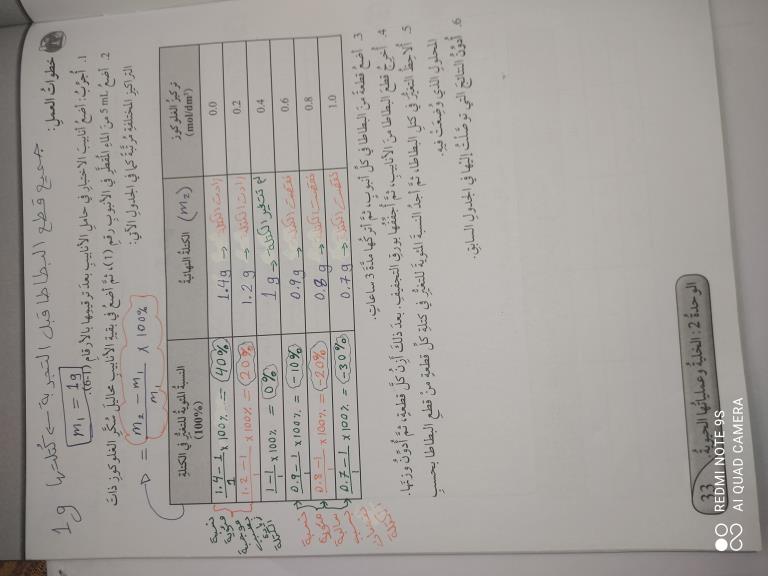 جميع قطع البطاطا قبل التجربة ← كتلتها 1g
خطوات العمل:
m₁ = 1g
1. أجرّب: أضعُ أنابيب الاختبار في حامل الأنابيب بعد ترقيمها بالأرقام (1-6).
2. أضعُ 5 mL من الماء المُقطّر في الأنبوب رقم (1)، ثمّ أضعُ في بقية الأنابيب محاليل سُكّر الغلوكوز ذات
التراكيز المختلفة مُرتّبةً كما في الجدول الآتي:
= (m₂ − m₁) / m₁ × 100%
تركيز الغلوكوز (mol/dm³) | الكتلة النهائية (m₂) | النسبة المئوية للتغيّر في الكتلة (100%)
0.0 | 1.4g → زادت الكتلة | (1.4 − 1) / 1 × 100% = 40%
0.2 | 1.2g → زادت الكتلة | (1.2 − 1) / 1 × 100% = 20%
0.4 | 1g → لم تتغير الكتلة | (1 − 1) / 1 × 100% = 0%
0.6 | 0.9g → نقصت الكتلة | (0.9 − 1) / 1 × 100% = −10%
0.8 | 0.8g → نقصت الكتلة | (0.8 − 1) / 1 × 100% = −20%
1.0 | 0.7g → نقصت الكتلة | (0.7 − 1) / 1 × 100% = −30%
نسبة مئوية موجبة زيادة الكتلة
نسبة مئوية سالبة نقصان الكتلة
3. أضعُ قطعةً من البطاطا في كل أنبوب، ثمّ أتركها مدّة 3 ساعات.
4. أُخرجُ قطع البطاطا من الأنابيب، ثمّ أجفّفها بورق التجفيف. بعد ذلك أزِنُ كل قطعة، ثمّ أُدوّنُ وزنها.
5. ألاحظُ التغيّر في كتل البطاطا، ثمّ أجدُ النسبة المئوية للتغيّر في كتلة كل قطعةٍ من قطع البطاطا بحسب
المحلول الذي وُضِعت فيه.
6. أُدوّنُ النتائج التي توصّلتُ إليها في الجدول السابق.
الوحدة 2: الخلية وعملياتها الحيوية.
33
REDMI NOTE 9S
AI QUAD CAMERA